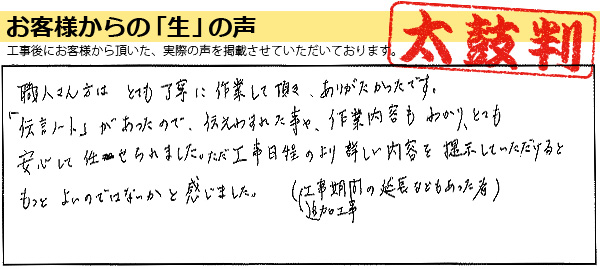 お客様からの「生」の声
太鼓判
工事後にお客様から頂いた、実際の声を掲載させていただいております。
職人さん方は とても丁寧に作業して頂き、ありがたかったです。
「伝言ノート」があったので、伝えわすれた事や、作業内容も わかり、とても
安心して任せられました。ただ工事日程のより詳しい内容を提示していただけると
もっと よいのではないかと感じました。 (工事期間の延長などもあった為)
追加工事